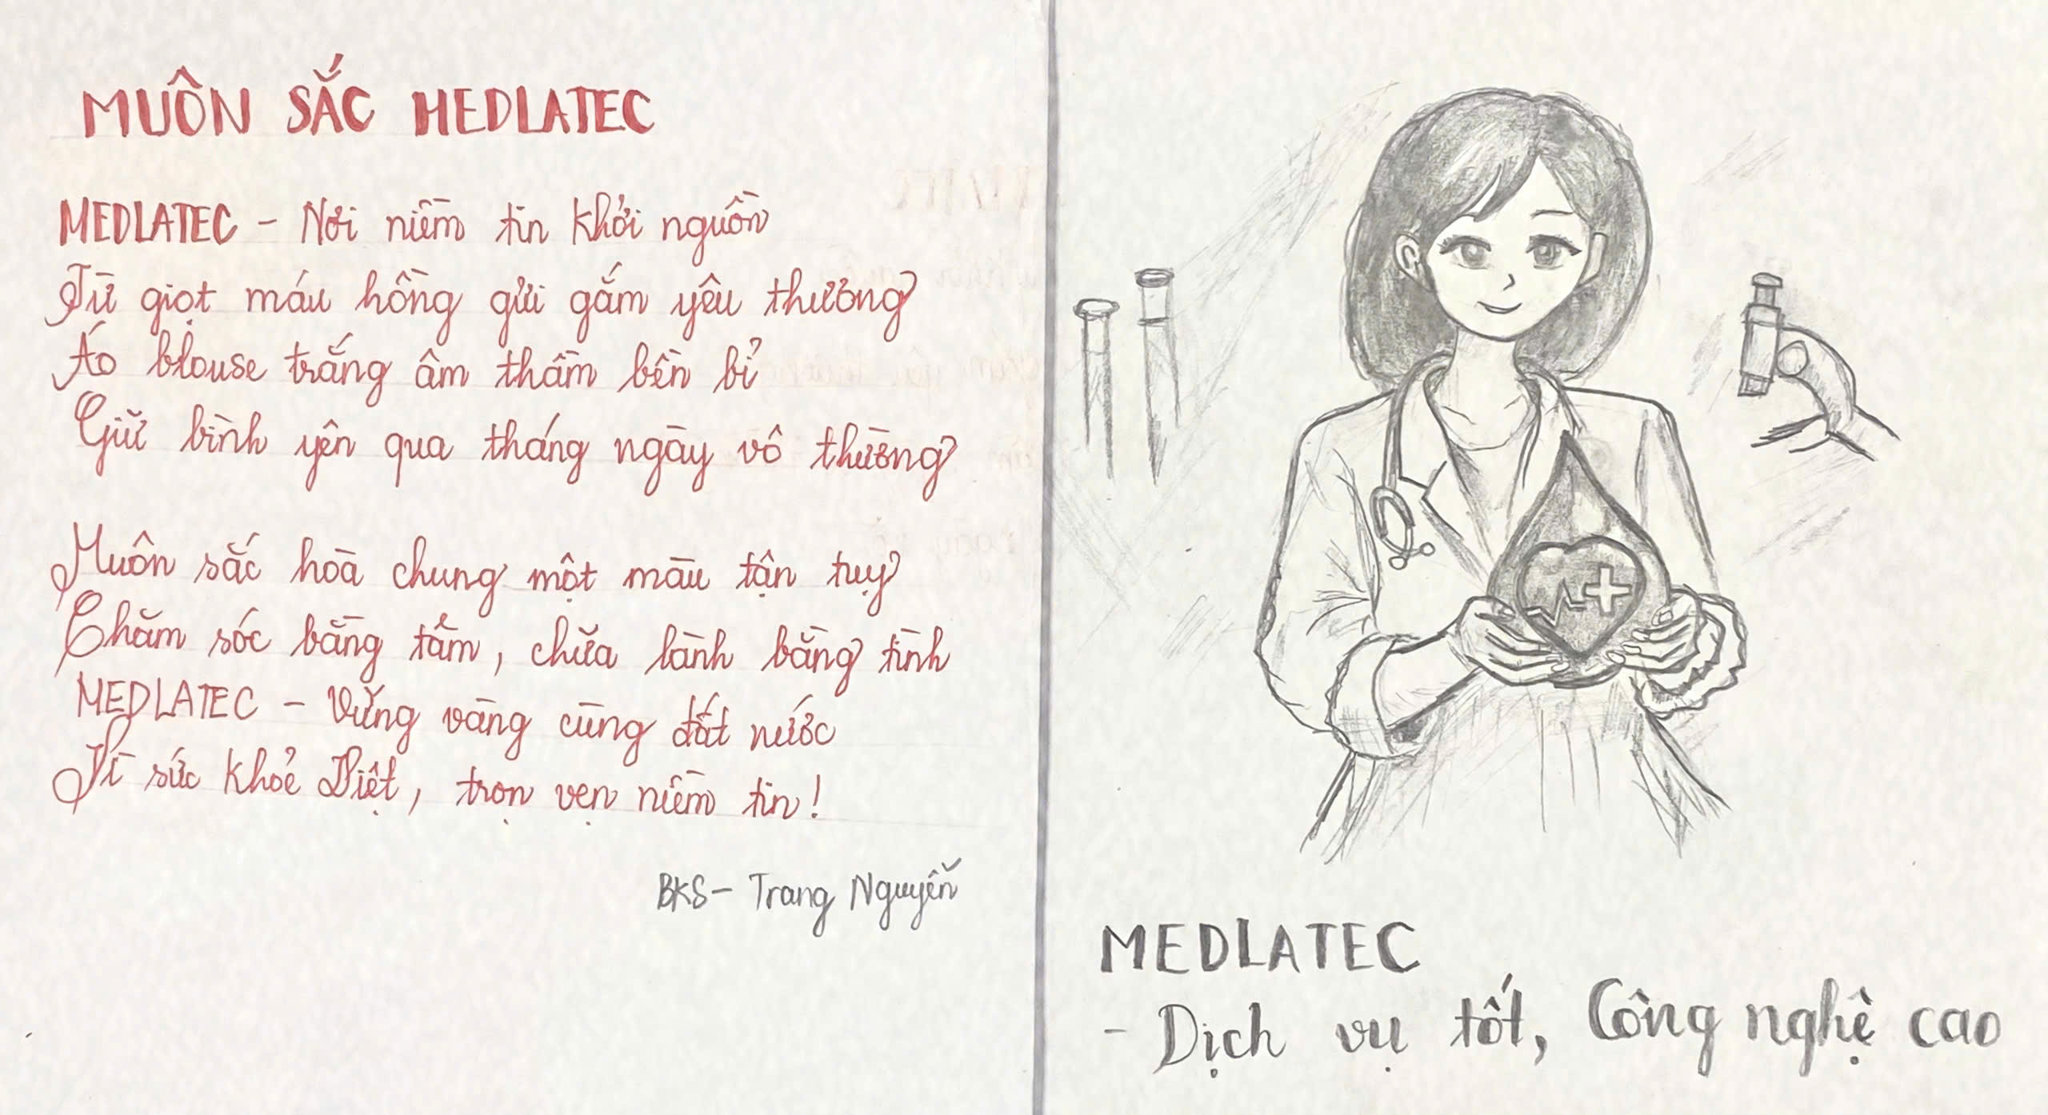 MUÔN SẮC MEDLATEC
MEDLATEC - Nơi niềm tin khởi nguồn
Từ giọt máu hồng gửi gắm yêu thương
Áo blouse trắng âm thầm bền bỉ
Giữ bình yên qua tháng ngày vô thường
Muôn sắc hoà chung một màu tận tuỵ
Chăm sóc bằng tâm, chữa lành bằng tình
MEDLATEC - Vững vàng cùng đất nước
Vì sức khoẻ Việt, trọn vẹn niềm tin!
BKS - Trang Nguyễn
MEDLATEC
- Dịch vụ tốt, Công nghệ cao